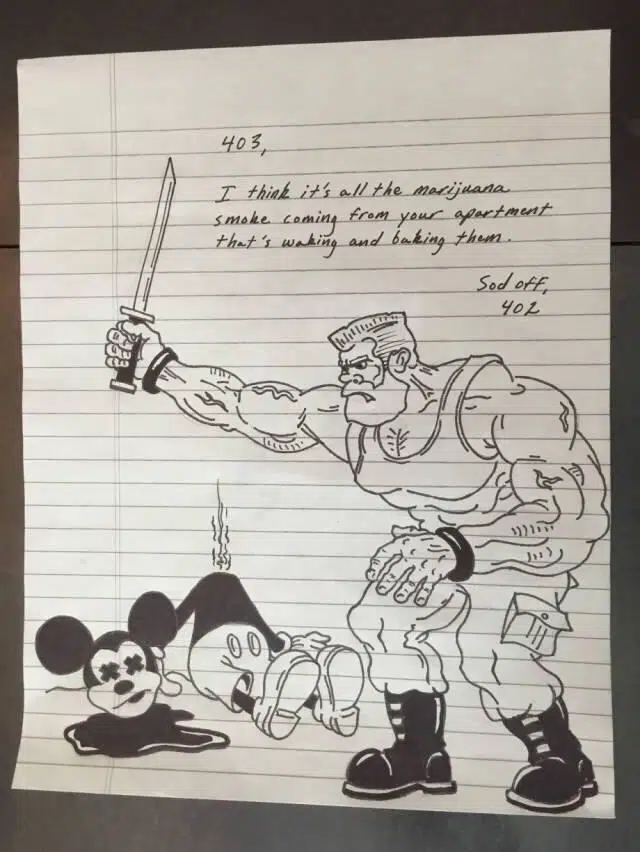 403,
I think it's all the marijuana
smoke coming from your apartment
that's waking and baking them.
Sod off,
402